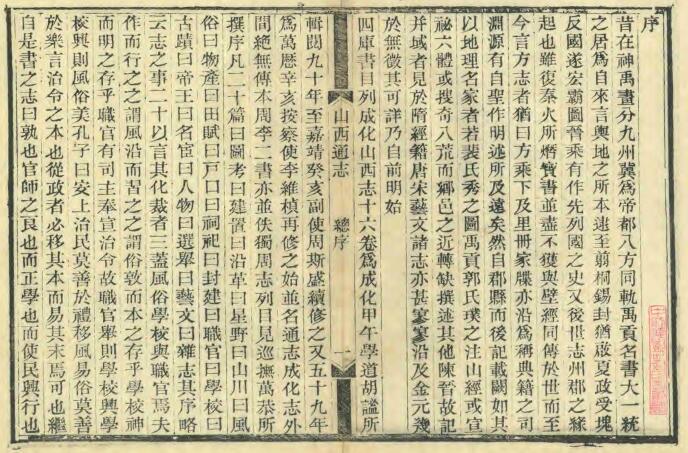 序
昔在神禹畫分九州冀爲帝都八方同軌禹貢名書大一統
之居爲自來言輿地之所本逮至翦桐錫封猶啟夏政受塊
反國遂宏霸圖晉乘有作先列國之史又後世志州郡之緣
起也雖復秦火所燔寶書並盡不獲與壁經同傳於世而至
今言方志者猶曰方乘下及里冊家牒亦沿爲稱典籍之司
淵源有自聖作明述所及遠矣然自郡縣而後記載闕如其
以地理名家者若裴氏秀之圖禹貢郭氏璞之注山經或官
祕六體或搜奇八荒而鄉邑之近轉缺撰述其他陳晉故記
并域者見於隋經籍唐宋藝文諸志亦甚寥寥沿及金元幾
於無徵其可詳乃自前明始
四庫書目列成化山西志十六卷爲成化甲午學道胡謐所
山西通志
總序
一
輯閱九十年至嘉靖癸亥副使周斯盛續修之又五十九年
爲萬歷辛亥按察使李維楨再修之始並名通志成化志外
間絶無傳本周李二書亦並佚獨周志列目見巡撫萬恭所
撰序凡二十篇曰圖考曰建置曰沿革曰星野曰山川曰風
俗曰物產曰田賦曰戸口曰祠祀曰封建曰職官曰學校曰
古蹟曰帝王曰名宦曰人物曰選舉曰藝文曰雜志其序略
云志之事二十以言其化裁者三蓋風俗學校與職官焉夫
作而行之之謂風沿而習之之謂俗敦而本之存乎學校神
而明之存乎職官有司主奉宣治令故職官舉則學校興學
校興則風俗美孔子曰安上治民莫善於禮移風易俗莫善
於樂言治令之本也從政者必移其本而易其末焉可也繼
自是書之志曰孰也官師之良也而正學也而使民興行也